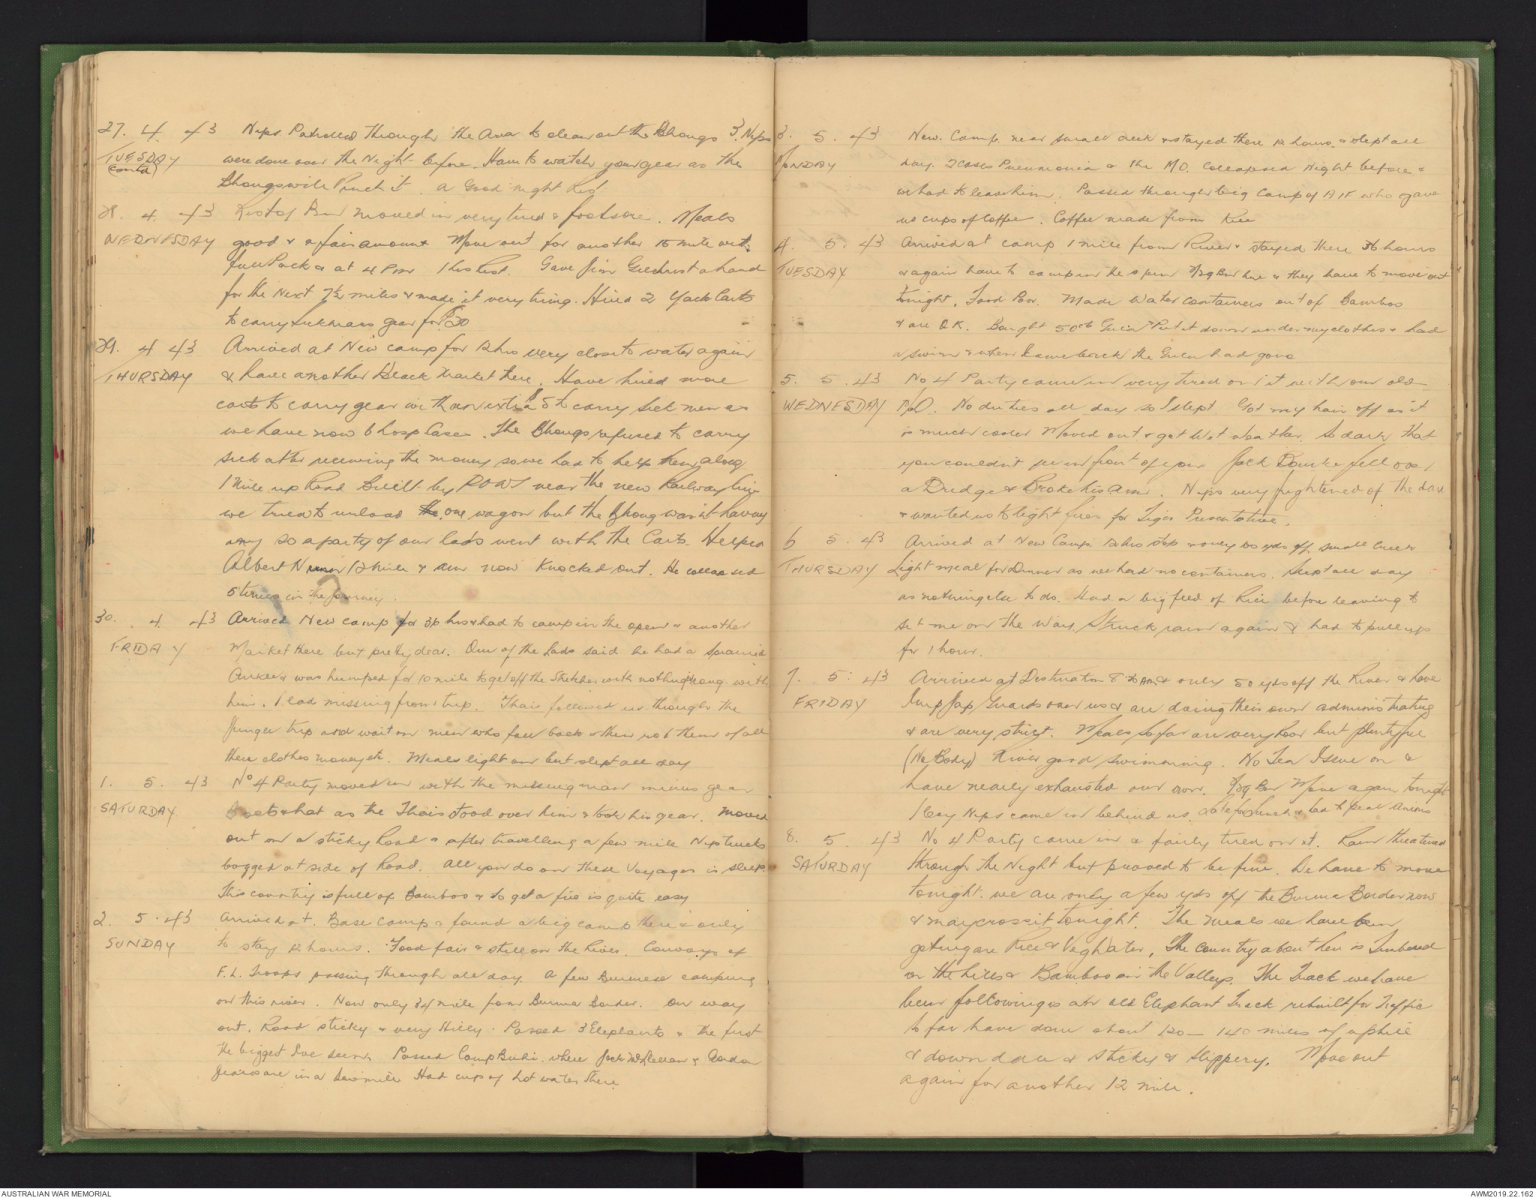 27. 4 43 Nips Patrolled through the Area to clean out the Bhongs 3 Nips
TUESDAY were done over the Night before. Have to watch your gear as the
(Contd) Bhongs will Pinch it. A Good night Rest
28. 4. 43 Rest of Party moved in very tired & footsore. Meals
WEDNESDAY good & a fair amount Move out for another 15 mile with
full Packs at 4 Pm 1 hrs Rest. Gave Jim Gilchrist a hand
for the Next 7½ miles & made it very tiring. Hired 2 Yack Carts
to carry sickmans gear for $30
29. 4 43 Arrived at New camp for 12 hrs very close to water again
THURSDAY & have another Black Market here. Have hired more
carts to carry gear with an extra 5 to carry sick men as
we have now 6 hosp Cases. The Bhongs refused to carry
sick after receiving the money so we had to help them along
1 Mile up Road built by P.O.W.s near the new Railway line
we tried to unload one wagon but the Bhong wasn't having
any so a party of our lads went with the Carts. Helped
Albert N 12 miles & am now Knocked out. He collapsed
5 times in the journey.
30. 4. 43 Arrived New camp for 36 hrs & had to camp in the open & another
FRIDAY Market there but pretty dear. One of the Lads said he had a Sprained
Ankle & was humped for 10 mile to get off the Stretcher with nothing wrong with
him. 1 lad missing from trip. Thais followed us through the
Jungle trip and wait on men who fall back & then rob them of all
there clothes money etc. Meals light on but slept all day
1. 5. 43 No 4 Party moved in with the missing man minus gear
SATURDAY Boots & hat as the Thais stood over him & took his gear. Moved
out on a sticky Road & after travelling a few mile Nip trucks
bogged at side of Road. All you do on these Voyages is sleep.
This country is full of Bamboo & to get a fire is quite easy
2. 5. 43 Arrived at Base camp & found a big camp there & only
SUNDAY to stay 12 hours. Food fair & still on the River. Convoys of
F.L. Troops passing through all day. A few Burmese camping
on this river. Now only 34 mile from Burma Border. On way
out. Road sticky & very Hilly. Passed 3 Elephants & the first
the biggest Ive seen. Passed Camp where Jack McLellan & Gordon
are in a Sawmill Had cup of hot water there
3. 5. 43 New Camp near small creek & stayed there 12 hours & slept all
MONDAY day. 2 cases Pneumonia & the M.O. Collapsed Night before &
we had to leave him. Passed through big Camp of AIF who gave
us cups of Coffee. Coffee made from Rice
4. 5. 43 Arrived at camp 1 mile from River & stayed there 36 hours
TUESDAY & again have to camp in the open. H/Q Bn here & they have to move out
tonight. Food Poor. Made Water Containers out of Bamboo
& are O.K. Bought 50ct Gula & Put it down under my clothes & had
a swim & when I came back the Gula had gone
5. 5. 43 No 4 Party came in very tired on it with our old
WEDNESDAY M.O. No duties all day so I slept. Got my hair off as it
is much cooler. Moved out & got Wet also thr. So dark that
you couldn't see in front of you Jack Bourke fell over
a Bridge & Broke his Arm. Nips very frightened of the dark
& wanted us to light fires for Tiger Preventative.
6 5. 43 Arrived at New Camp 12 hrs stop & only 50 yds off small Creek
THURSDAY Light meal for Dinner as we had no containers. Slept all day
as nothing else to do. Had a big feed of Rice before leaving to
set me on the way. Struck rain again & had to pull up
for 1 hour.
7. 5. 43 Arrived at Destination 8 30 AM & only 50 yds off the River & have
FRIDAY Imp Jap Guards over us & are doing their own administrating
& are very strict. Meals so far are very Poor but plentyful
(No Body) River good swimming. No Tea Issue on &
have nearly exhausted our own. H/Q Bn Move again tonight
1 Coy Nips came in behind us, late for lunch & had to
8. 5. 43 No 4 Party came in a fairly tired on it. Rain threatened
SATURDAY through the Night but proved to be fine. We have to move
tonight. we are only a few yds off the Burma Border now
& may cross it tonight. The meals we have been
getting are Rice & Veg Water. The country about here is Timbered
on the hills & Bamboo in the Valleys. The Track we have
been following is an old Elephant Track rebuilt for Traffic
So far have done about 130 – 140 miles of uphill
& down dale & sticky & slippery. Move out
again for another 12 mile.
AUSTRALIAN WAR MEMORIAL
AWM2019.22.162